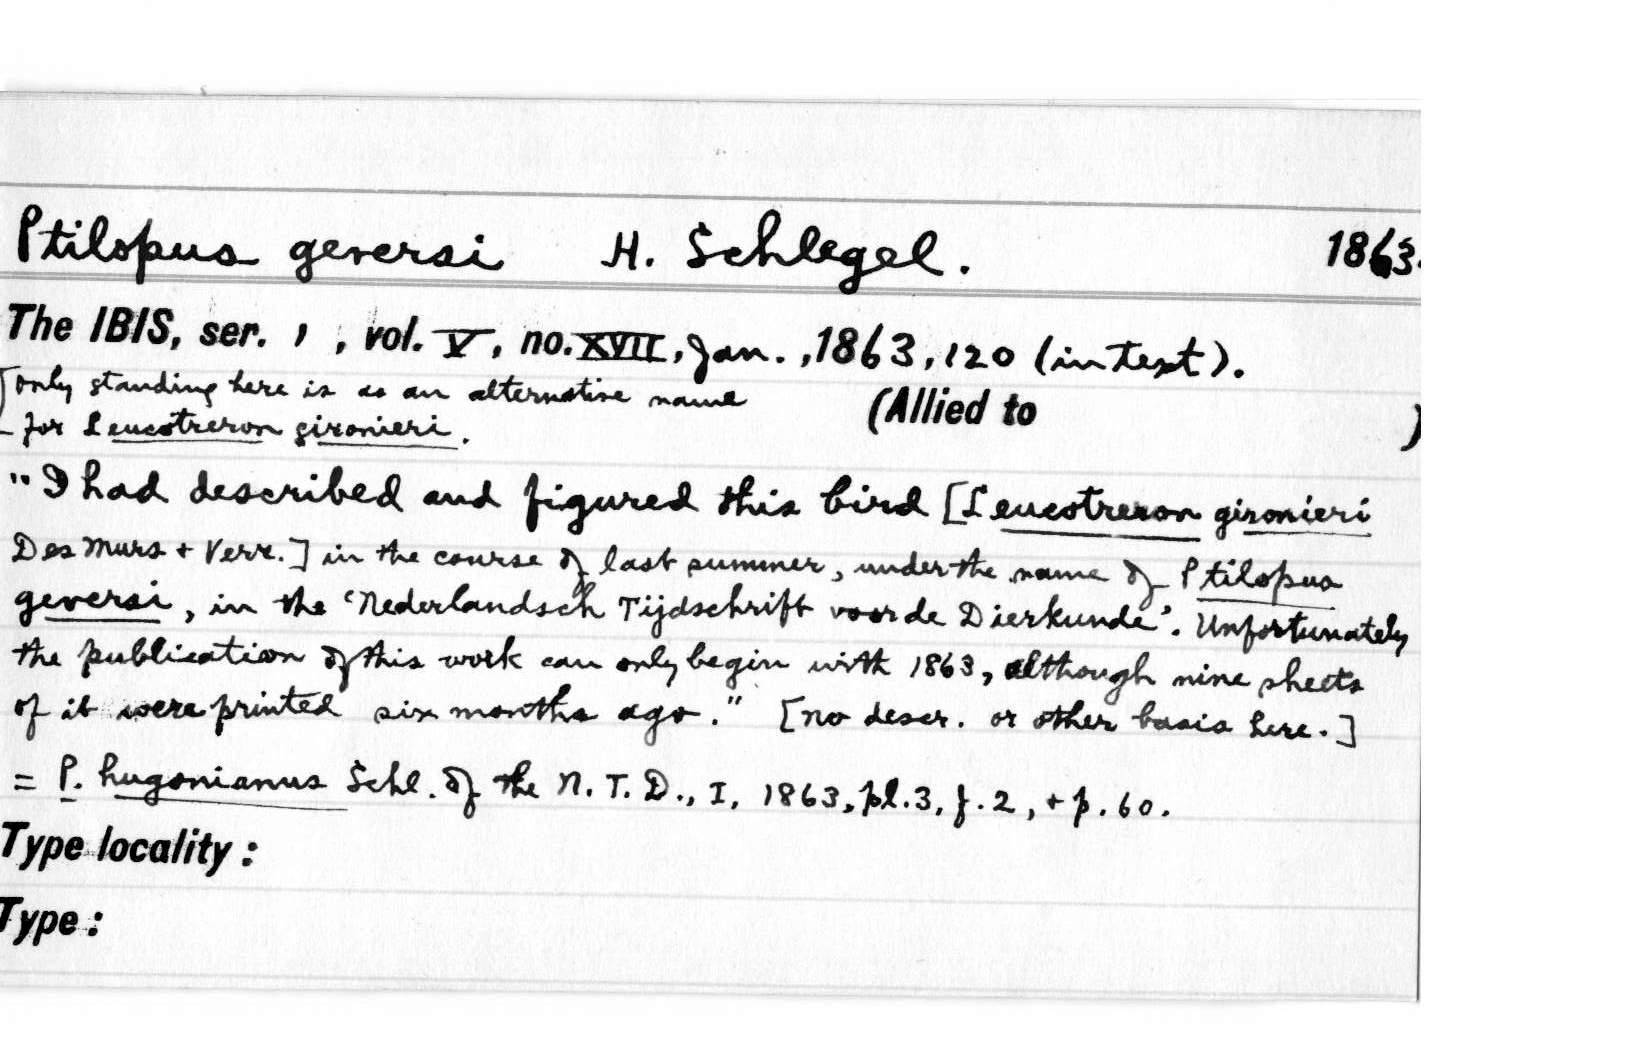 Ptilopus geversi H. Schlegel. 1863.
The IBIS, ser. 1, vol. V, no. XVII, Jan., 1863, 120 (in text).
[only standing here is as an alternative name
for Leucotreron gironieri.
(Allied to )
"I had described and figured this bird [Leucotreron gironieri
Des Murs + Verr.] in the course of last summer, under the name of Ptilopus
geversi, in the 'Nederlandsch Tijdschrift voor de Dierkunde'. Unfortunately
the publication of this work can only begin with 1863, although nine sheets
of it were printed six months ago." [no descr. or other basis here.]
= P. hugonianus Schl. of the N. T. D., I, 1863, pl. 3, f. 2, + p. 60.
Type locality:
Type: